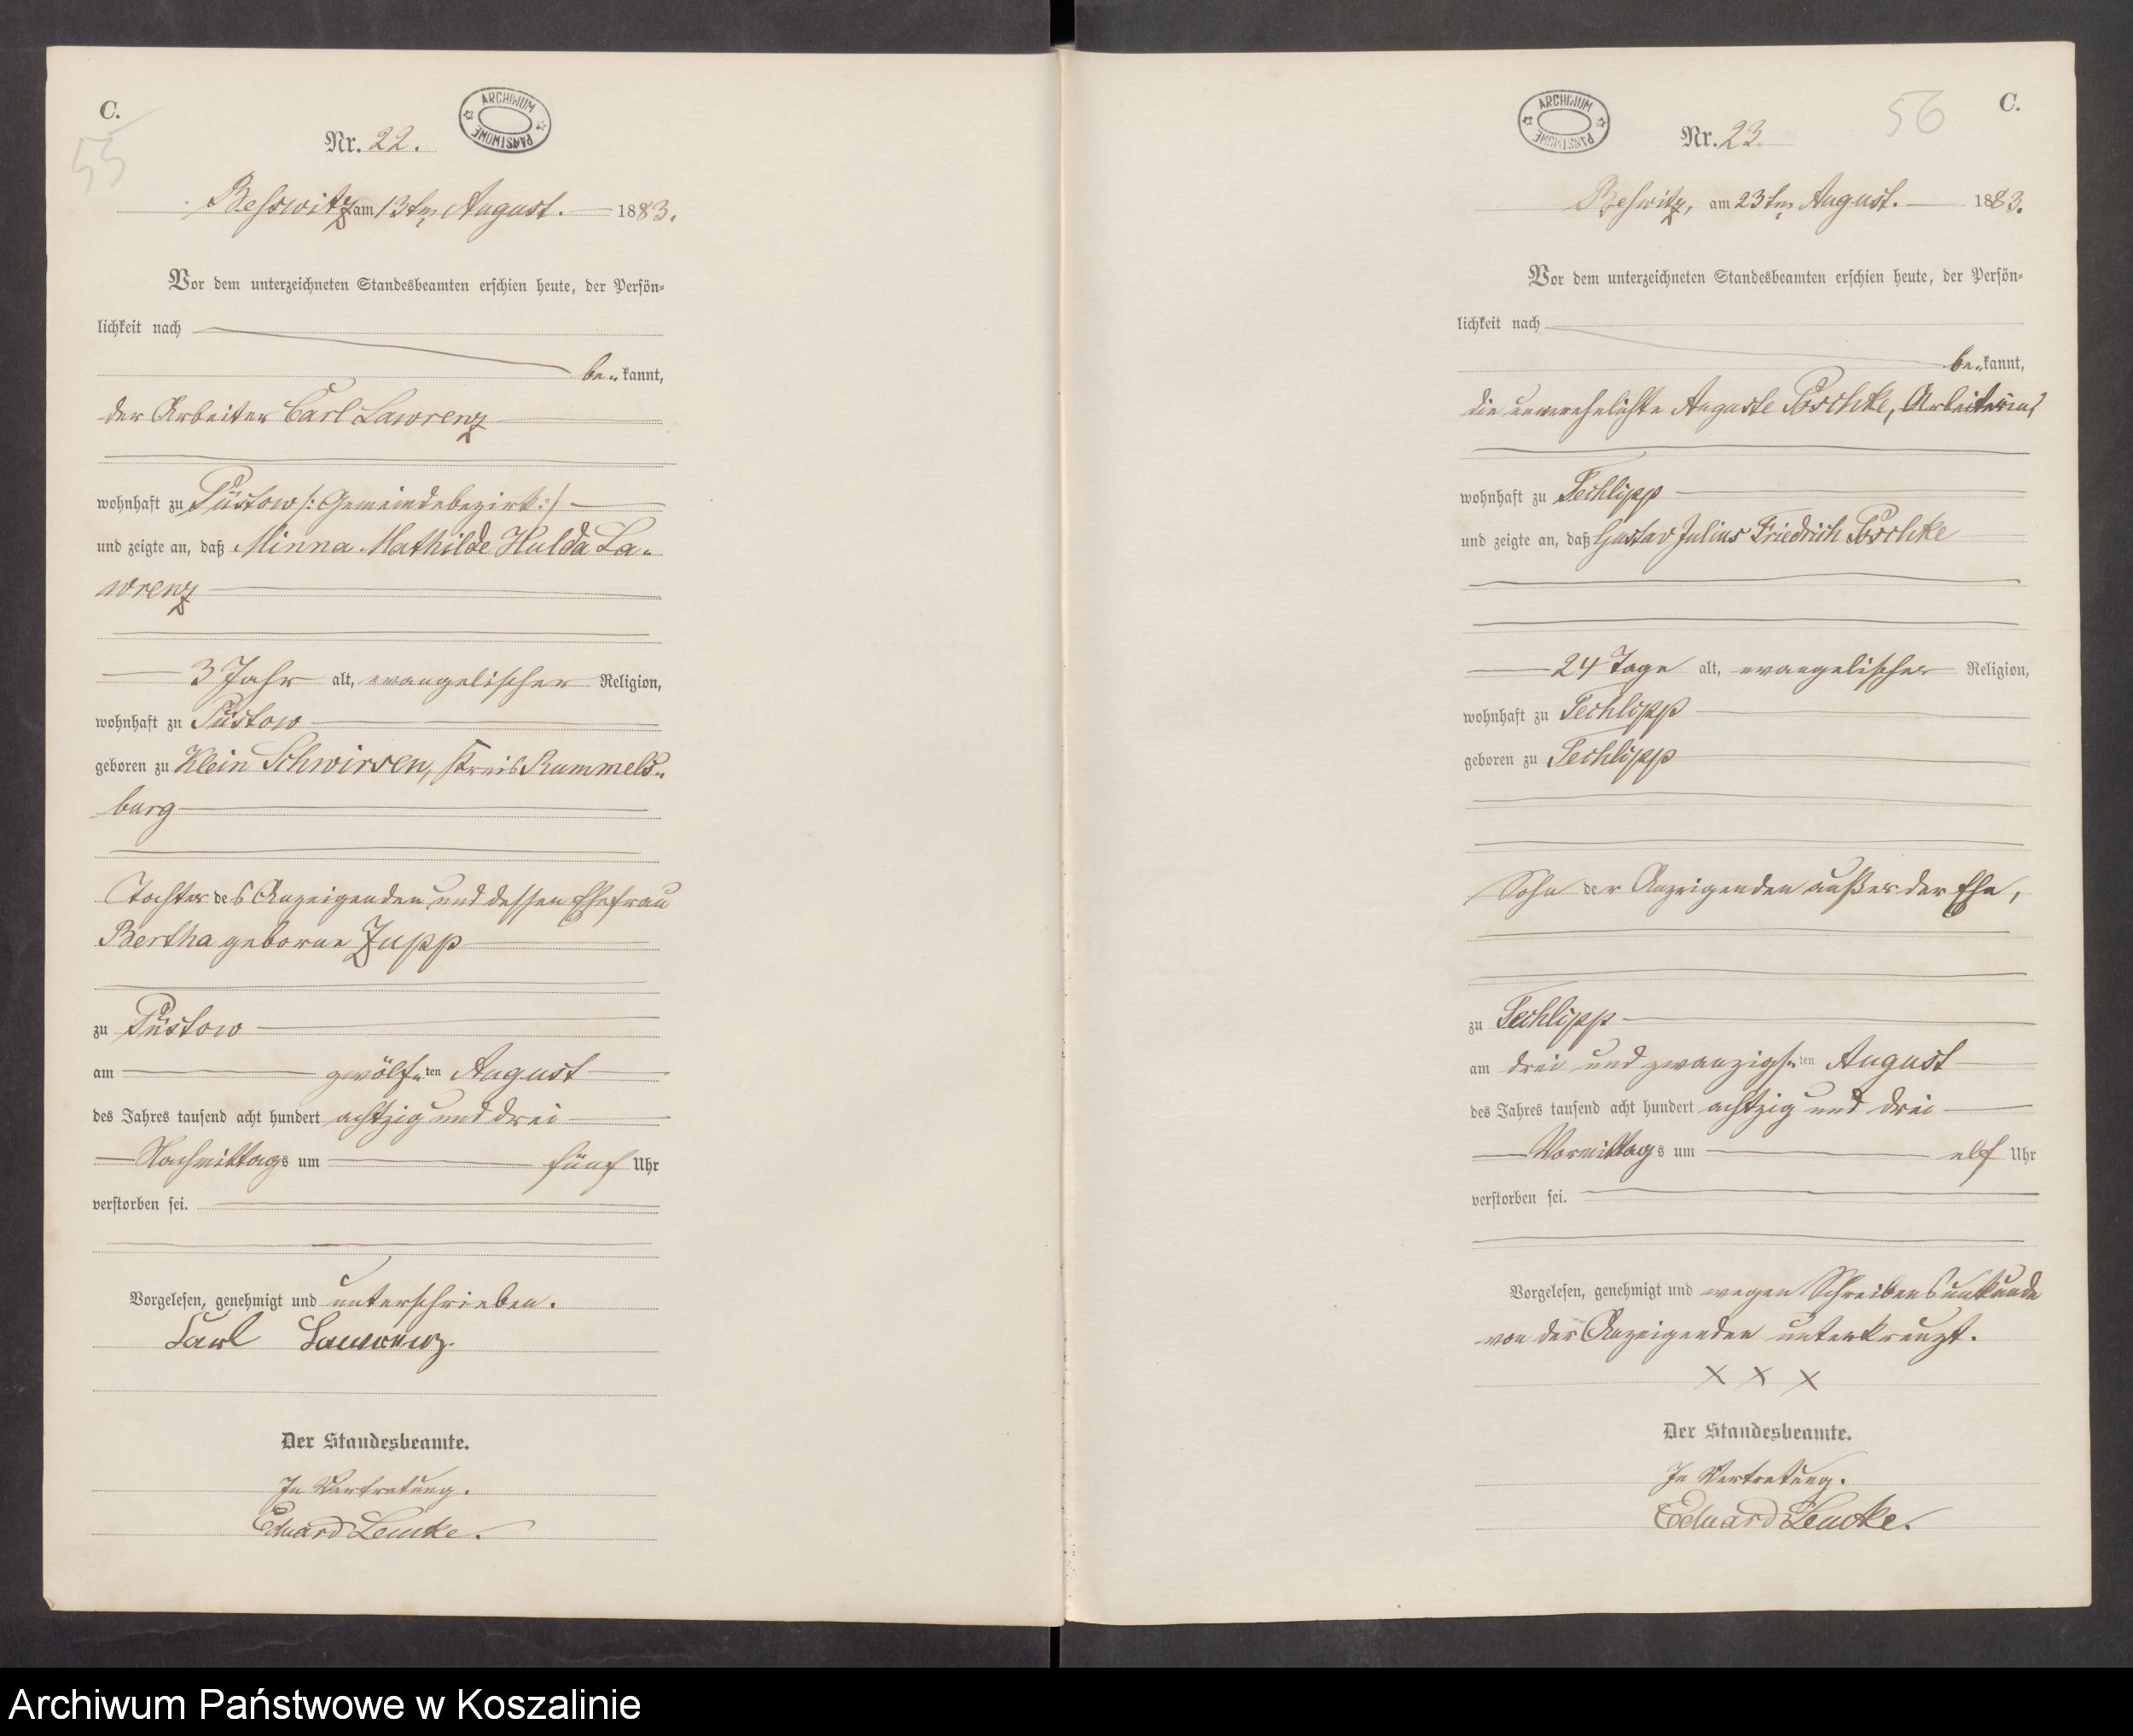 C.
55
Nr. 22.
ARCHIWUM PAŃSTWOWE
Beßwitz am 13ten August. 1883.
Vor dem unterzeichneten Standesbeamten erschien heute, der Persön-
lichkeit nach
be- kannt,
der Arbeiter Carl Lawrenz
wohnhaft zu Püstow /: Gemeindebezirk :/
und zeigte an, daß Minna Mathilde Hulda La-
wrenz
3 Jahr alt, evangelischer Religion,
wohnhaft zu Püstow
geboren zu Klein Schwirsen, Kreis Rummels-
burg
Tochter des Anzeigenden und dessen Ehefrau
Bertha geborne Zupp
zu Püstow
am zwölf-ten August
des Jahres tausend acht hundert achtzig und drei
Nachmittags um fünf Uhr
verstorben sei.
Vorgelesen, genehmigt und unterschrieben.
Carl Lawrenz.
Der Standesbeamte.
In Vertretung.
Eduard Lemke.
C.
56
Nr. 23.
ARCHIWUM PAŃSTWOWE
Beßwitz, am 23ten August. 1883.
Vor dem unterzeichneten Standesbeamten erschien heute, der Persön-
lichkeit nach
be- kannt,
die unverehelichte Auguste Poschke, Arbeiterin,
wohnhaft zu Techlipp
und zeigte an, daß Gustav Julius Friedrich Poschke
24 Tage alt, evangelischer Religion,
wohnhaft zu Techlipp
geboren zu Techlipp
Sohn der Anzeigenden außer der Ehe,
zu Techlipp
am drei und zwanzigs-ten August
des Jahres tausend acht hundert achtzig und drei
Vormittags um elf Uhr
verstorben sei.
Vorgelesen, genehmigt und wegen Schreibensunkunde
von der Anzeigenden unterkreuzt.
X X X
Der Standesbeamte.
In Vertretung.
Eduard Lemke.
Archiwum Państwowe w Koszalinie